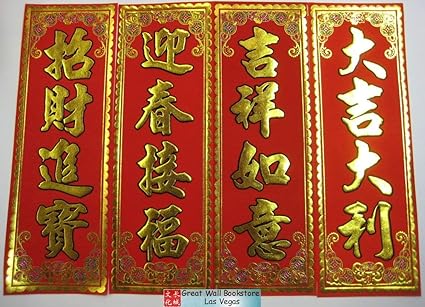 招財進寶
迎春接福
吉祥如意
大吉大利
Great Wall Bookstore
Las Vegas